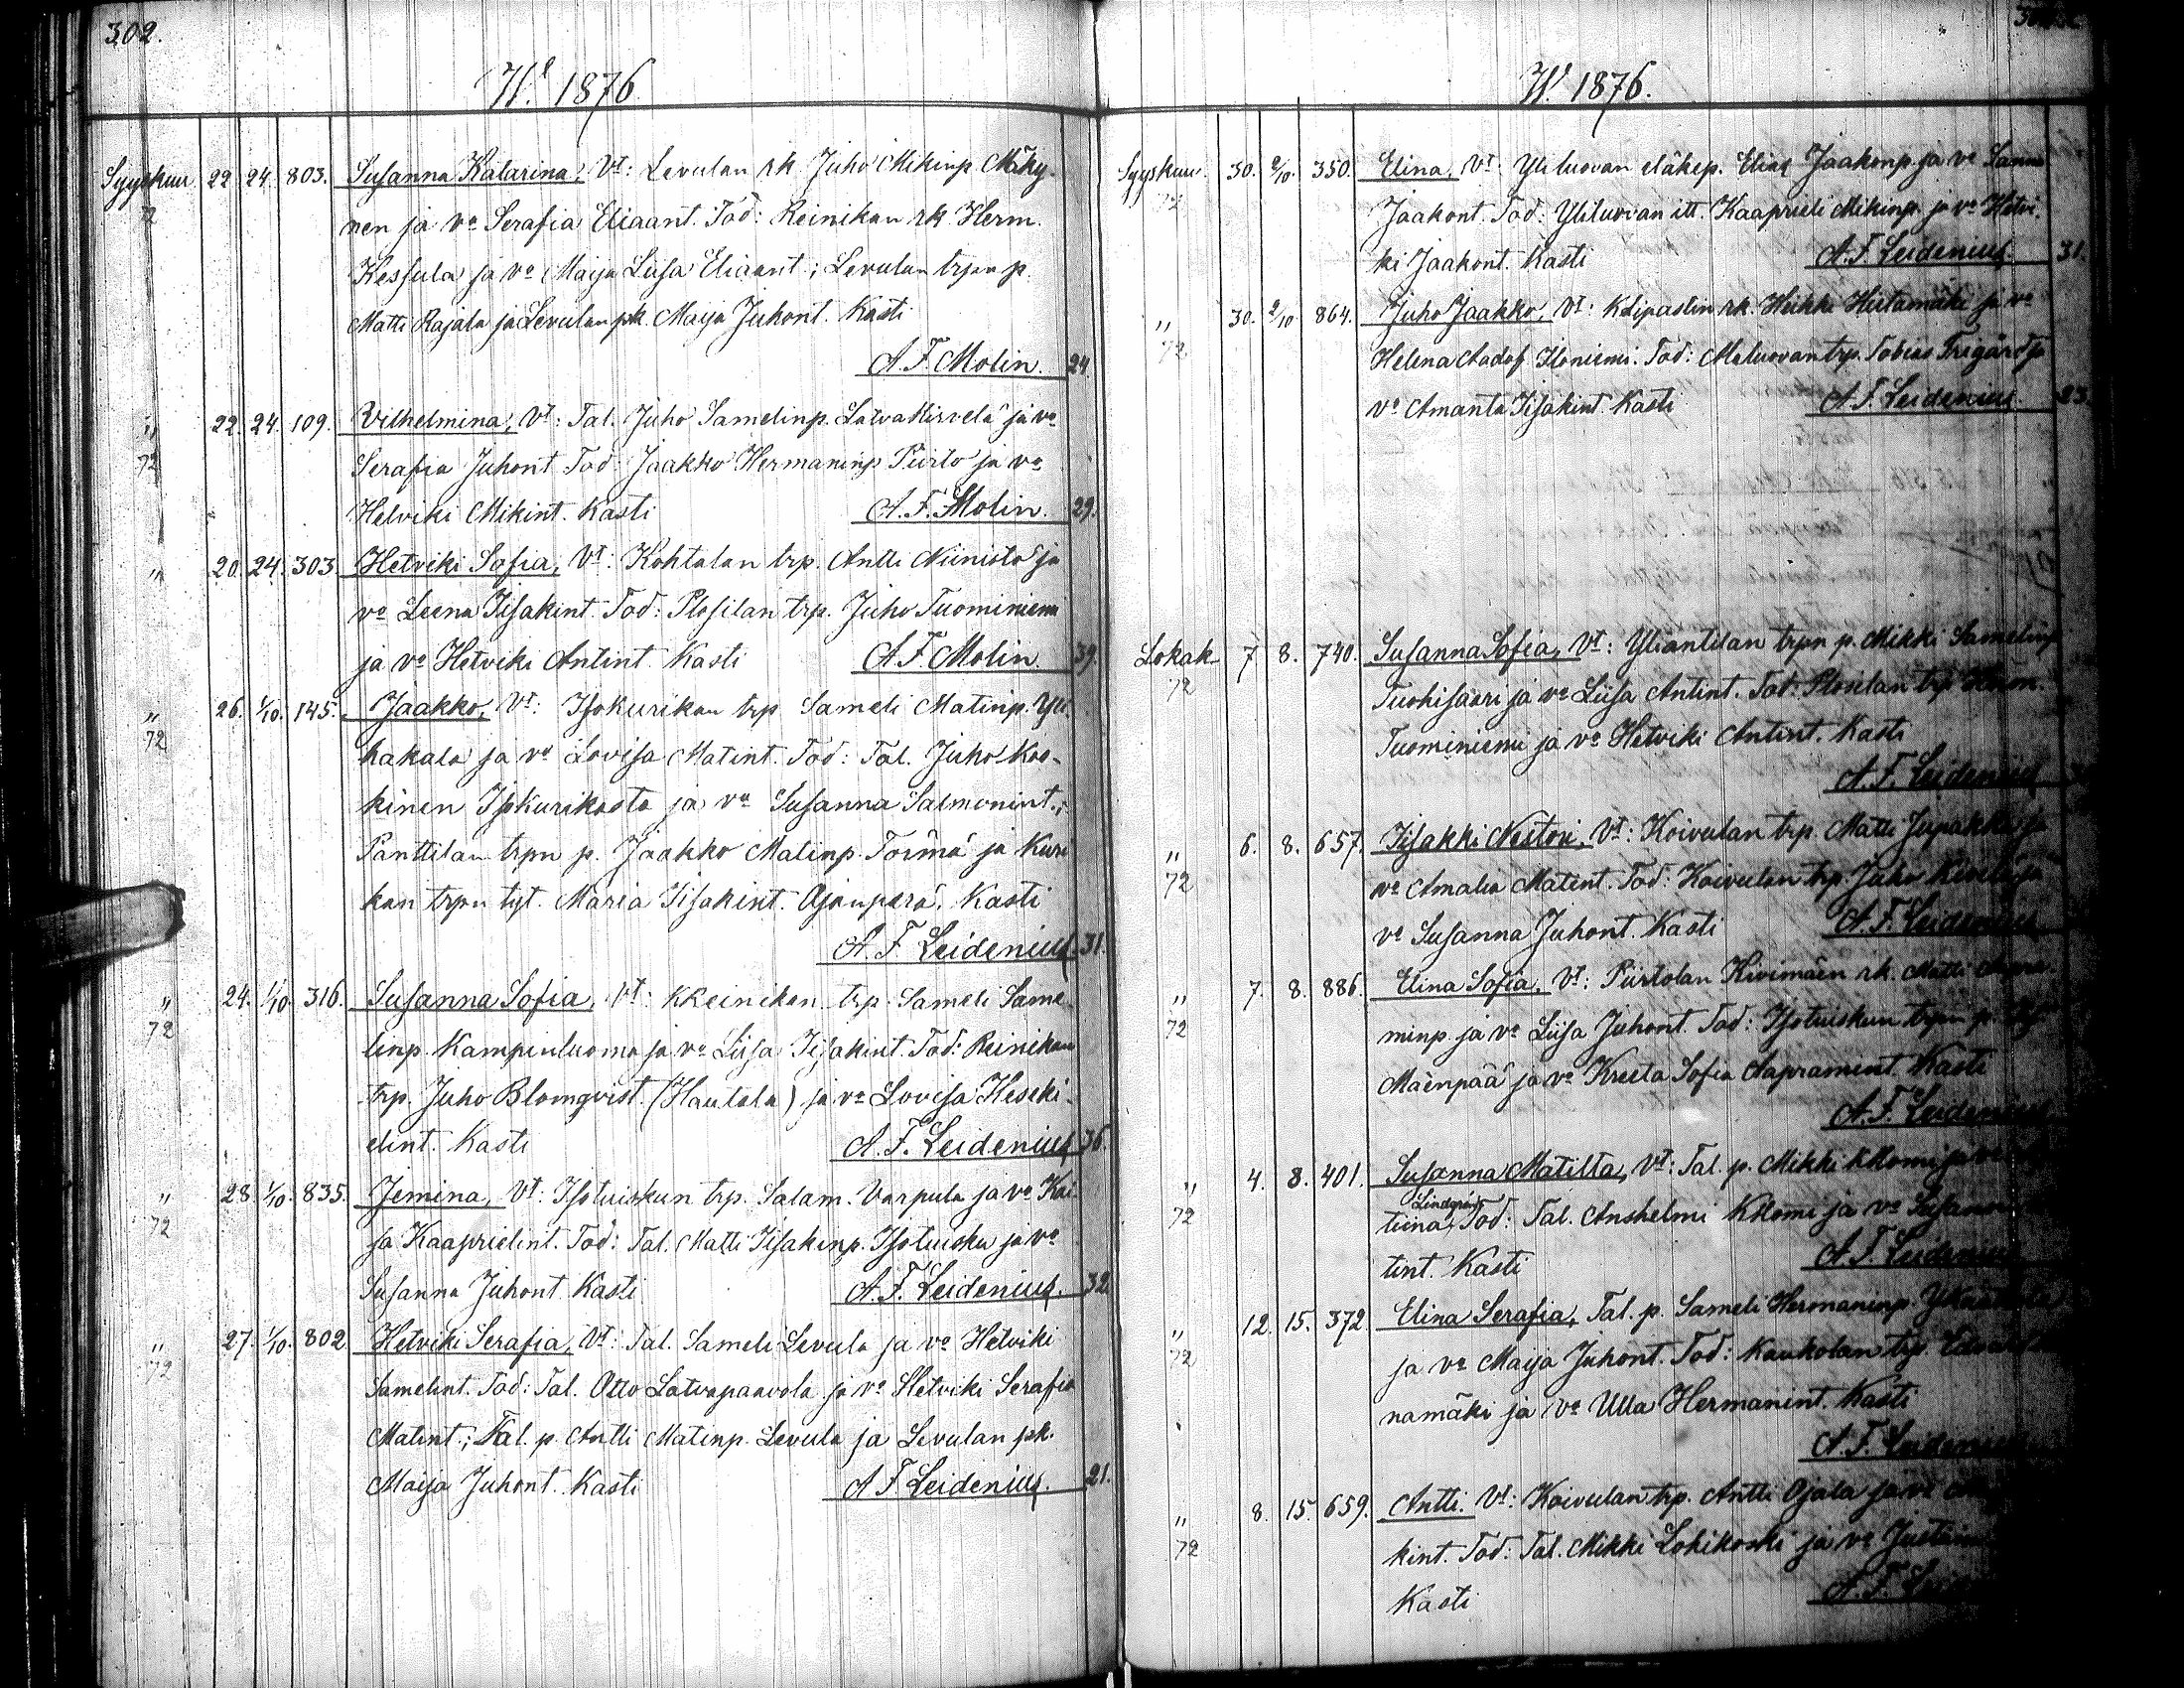 302.
W. 1876
Syyskuu 22. 24. 803. Susanna Katarina, Vt: Levulan rk. Juho Mikinp. Mäky-
72 nen ja vo Serafia Eliaant. Tod: Reinikan rk. Herm.
Kessula ja vo Maija Liisa Eliaant.; Levulan trpn p.
Matti Rajala ja Levulan pk. Maija Juhont. Kasti
A. F. Molin. 24.
" 22. 24. 109. Vilhelmina, Vt: Tal. Juho Samelinp. Latvakirvelä ja vo
72 Serafia Juhont. Tod: Jaakko Hermaninp. Piirto ja vo
Helviki Mikint. Kasti A. F. Molin. 29.
" 20. 24. 303. Hetviki Sofia, Vt: Kohtalan trp. Antti Niinisto ja
vo Leena Iisakint. Tod: Plosilan trp. Juho Tuominiemi
ja vo Hetviki Antint. Kasti A. F. Molin. 39.
" 26. 1/10. 145. Jaakko, Vt: Isokurikan trp. Sameli Matinp. Yli-
72 hakala ja vo Lovisa Matint. Tod: Tal. Juho Koo-
kinen Isokurikasta ja vo Susanna Salmonint.;
Panttilan trpn p. Jaakko Matinp. Törmä ja Kuri
kan trpn tyt. Maria Iisakint. Ojanperä. Kasti
A. F. Leidenius. 31.
" 24. 1/10. 316. Susanna Sofia, Vt: KReinikan trp. Sameli Same-
72 linp. Kampinluoma ja vo Liisa Iisakint. Tod: Reinikan
trp. Juho Blomqvist (Hautala) ja vo Lovisa Heseki-
elint. Kasti A. F. Leidenius 36.
" 28. 1/10. 835. Jemina, Vt: Isotuiskun trp. Salam. Varpula ja vo Kai
72 sa Kaaprielint. Tod: Tal. Matti Iisakinp. Isotuisku ja vo
Susanna Juhont. Kasti A. F. Leidenius. 32.
" 27. 1/10. 802. Hetviki Serafia, Vt: Tal. Sameli Levula ja vo Hetviki
72 Samelint. Tod: Tal. Otto Latvapaavola ja vo Hetviki Serafia
Matint.; Tal. p. Antti Matinp. Levula ja Levulan pk.
Maija Juhont. Kasti A. F. Leidenius. 21.
W. 1876.
Syyskuu. 30. 2/10. 350. Elina, Vt: Yliluovan eläkep. Elias Jaakonp. ja vo Sanna
72 Jaakont. Tod: Yliluovan itt. Kaaprieli Mikinp. ja vo Hetvi-
ki Jaakont. Kasti A. F. Leidenius. 31.
" 30. 2/10 864. Juho Jaakko, Vt: Klipastin rk. Heikki Hiitamäki ja vo
72 Helena Aadof. Iloniemi. Tod: Meluovan trp. Tobias Trigård ja
vo Amanta Iisakint. Kasti A. F. Leidenius. 23.
Lokak 7 8. 740. Susanna Sofia, Vt: Yliantilan trpn p. Mikki Samelinp
72 Tuohisaari ja vo Liisa Antint. Tod: Plosilan trp.
Tuominiemi ja vo Hetviki Antint. Kasti
A. F. Leidenius
" 6. 8. 657. Iisakki Nestori, Vt: Koivulan trp. Matti Jupakka ja
72 vo Amalia Matint. Tod: Koivulan trp. Juho ja
vo Susanna Juhont. Kasti A. F. Leidenius
" 7. 8. 886. Elina Sofia, Vt: Piirtolan Kivimäen rk. Matti
72 minp. ja vo Liisa Juhont. Tod: Isotuiskun trpn p.
Mäenpää ja vo Kreeta Sofia Aapramint. Kasti
A. F. Leidenius
" 4. 8. 401. Susanna Matilta, Vt: Tal. p. Mikki KKomi ja vo
Lindqvist
72 tiina, Tod: Tal. Anshelmi KKomi ja vo Susanna
tint. Kasti A. F. Leidenius
" 12. 15. 372 Elina Serafia, Tal. p. Sameli Hermaninp.
72 ja vo Maija Juhont. Tod: Kaukolan trp.
namäki ja vo Ulla Hermanint. Kasti
A. F. Leidenius
" 8. 15. 659. Antti. Vt: Koivulan trp. Antti Ojala ja vo
72 kint. Tod: Tal. Mikki Lohikoski ja vo
Kasti A. F.